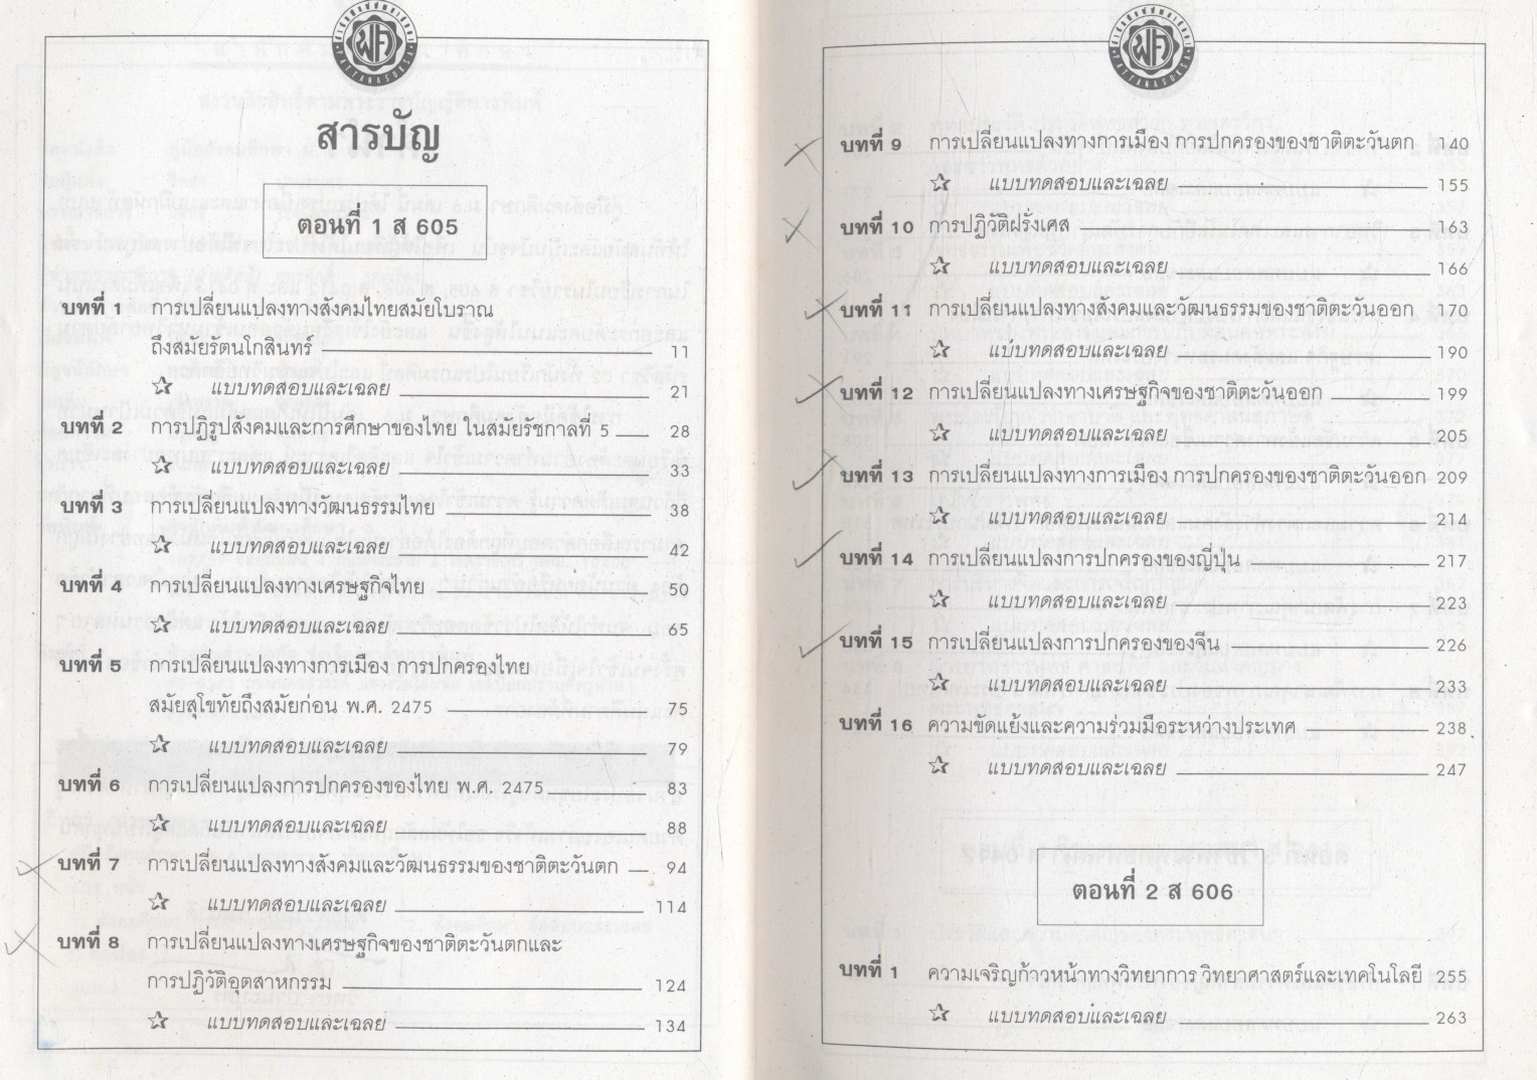 พศ
PATTANASUKSA
สารบัญ
ตอนที่ 1 ส 605
บทที่ 1 การเปลี่ยนแปลงทางสังคมไทยสมัยโบราณ
ถึงสมัยรัตนโกสินทร์ 11
แบบทดสอบและเฉลย 21
บทที่ 2 การปฏิรูปสังคมและการศึกษาของไทย ในสมัยรัชกาลที่ 5 28
แบบทดสอบและเฉลย 33
บทที่ 3 การเปลี่ยนแปลงทางวัฒนธรรมไทย 38
แบบทดสอบและเฉลย 42
บทที่ 4 การเปลี่ยนแปลงทางเศรษฐกิจไทย 50
แบบทดสอบและเฉลย 65
บทที่ 5 การเปลี่ยนแปลงทางการเมือง การปกครองไทย
สมัยสุโขทัยถึงสมัยก่อน พ.ศ. 2475 75
แบบทดสอบและเฉลย 79
บทที่ 6 การเปลี่ยนแปลงการปกครองของไทย พ.ศ. 2475 83
แบบทดสอบและเฉลย 88
บทที่ 7 การเปลี่ยนแปลงทางสังคมและวัฒนธรรมของชาติตะวันตก 94
แบบทดสอบและเฉลย 114
บทที่ 8 การเปลี่ยนแปลงทางเศรษฐกิจของชาติตะวันตกและ
การปฏิวัติอุตสาหกรรม 124
แบบทดสอบและเฉลย 134
พศ
PATTANASUKSA
บทที่ 9 การเปลี่ยนแปลงทางการเมือง การปกครองของชาติตะวันตก 140
แบบทดสอบและเฉลย 155
บทที่ 10 การปฏิวัติฝรั่งเศส 163
แบบทดสอบและเฉลย 166
บทที่ 11 การเปลี่ยนแปลงทางสังคมและวัฒนธรรมของชาติตะวันออก 170
แบบทดสอบและเฉลย 190
บทที่ 12 การเปลี่ยนแปลงทางเศรษฐกิจของชาติตะวันออก 199
แบบทดสอบและเฉลย 205
บทที่ 13 การเปลี่ยนแปลงทางการเมือง การปกครองของชาติตะวันออก 209
แบบทดสอบและเฉลย 214
บทที่ 14 การเปลี่ยนแปลงการปกครองของญี่ปุ่น 217
แบบทดสอบและเฉลย 223
บทที่ 15 การเปลี่ยนแปลงการปกครองของจีน 226
แบบทดสอบและเฉลย 233
บทที่ 16 ความขัดแย้งและความร่วมมือระหว่างประเทศ 238
แบบทดสอบและเฉลย 247
ตอนที่ 2 ส 606
บทที่ 1 ความเจริญก้าวหน้าทางวิทยาการ วิทยาศาสตร์และเทคโนโลยี 255
แบบทดสอบและเฉลย 263